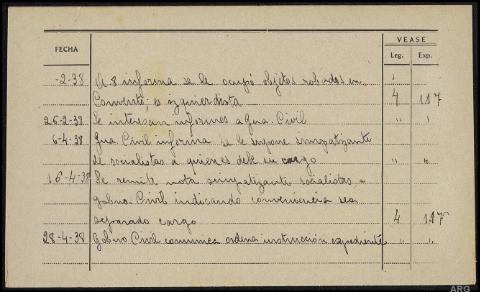 VEASE
FECHA Leg. Exp.
-2-38 A 8 informa se le ocupó objetos robados en
Convento; es izquierdista 4 117
26-2-38 Se interesan informes a Gua. Civil " "
6-4-38 Gua Civil informa se le supone simpatizante
de socialistas a quienes debe su cargo " "
16-4-38 Se remite nota simpatizante socialistas a
Gobno. Civil indicando conveniencia sea
separado cargo 4 127
28-4-38 Gobno. Civil comunica ordena instrucción expediente " "
ARG